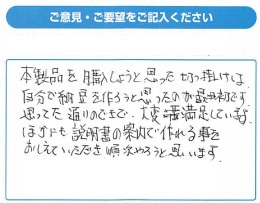 ご意見・ご要望をご記入ください
本製品を購入しようと思った切っ掛けは
自分で納豆を作ろうと思ったのが最初です
思ってた通りのできで、大変満足しています。
ほかにも説明書の案内で作れる事を
おしえていただき順次やろうと思います。